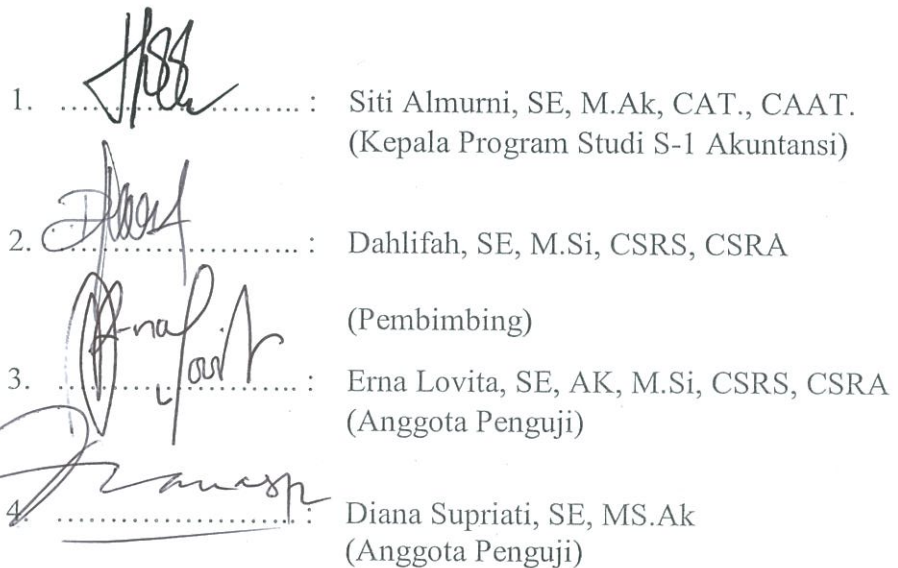 1. ........................ : Siti Almurni, SE, M.Ak, CAT., CAAT.
(Kepala Program Studi S-1 Akuntansi)
2. ........................ : Dahlifah, SE, M.Si, CSRS, CSRA
(Pembimbing)
3. ........................ : Erna Lovita, SE, AK, M.Si, CSRS, CSRA
(Anggota Penguji)
4. ........................ : Diana Supriati, SE, MS.Ak
(Anggota Penguji)